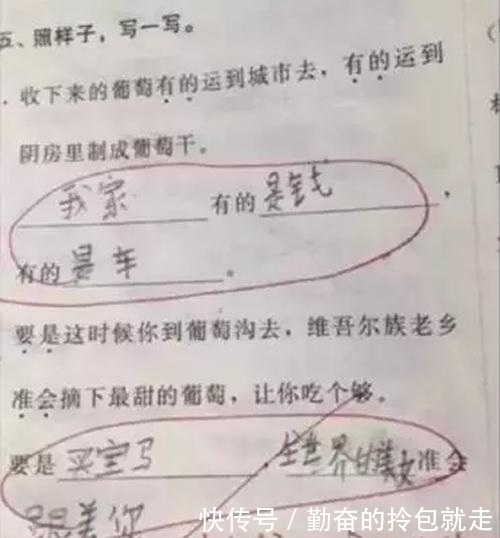 五、照样子,写一写。
收下来的葡萄有的运到城市去,有的运到
阴房里制成葡萄干。
我家有的是钱,
有的是车。
要是这时候你到葡萄沟去,维吾尔族老乡
准会摘下最甜的葡萄,让你吃个够。
要是买宝马,全世界的美女准会
跟着你
快传号/勤奋的拎包就走